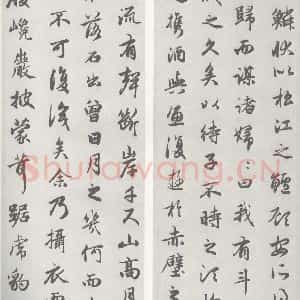 鱗狀似松江之鱸顧安所
歸而謀諸婦曰我有斗
之久矣以待子不時之須
攜酒與魚復遊於赤壁之
流有聲斷岸千尺山高月
落石出曾日月之幾何而
不可復識矣余乃攝衣而
巉巖披蒙茸踞虎豹
Shufawang.CN